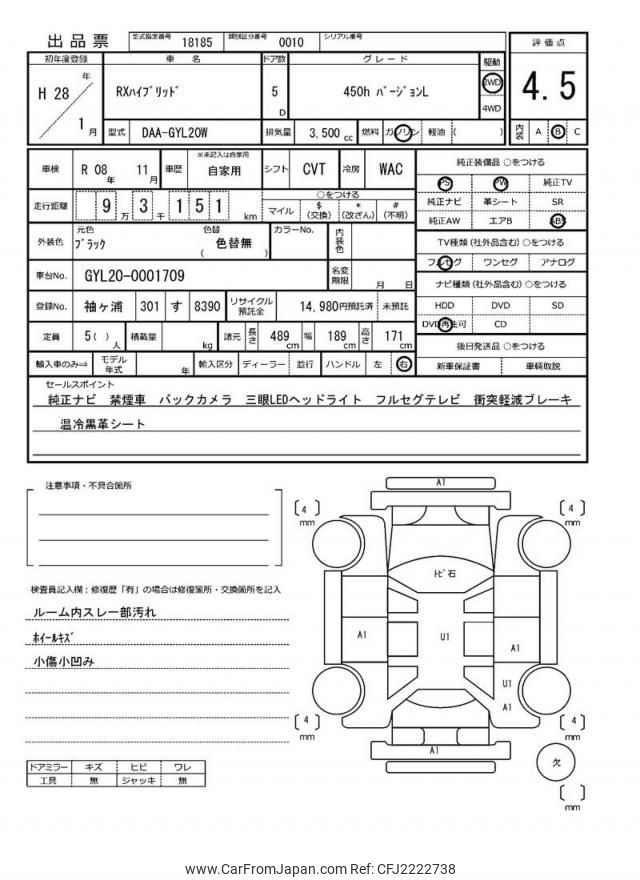 出品票
型式指定番号 18185 類別区分番号 0010 シリアル番号
初年度登録 車名 ドア数 グレード 駆動 評価点
H 28 年 1 月
RXハイブリッド 5 D 450h バージョンL 2WD 4WD
4.5
型式 DAA-GYL20W 排気量 3,500 cc 燃料 ガソリン 軽油 ( ) 内装 A B C
車検 R 08 年 11 月 車歴 ※未記入は自家用 自家用 シフト CVT 冷房 WAC
走行距離 9 万 3 千 1 5 1 km ○をつける マイル $ (交換) * (改ざん) # (不明)
外装色 元色 ブラック 色替 ( 色替無 ) カラーNo. 内装色
車台No. GYL20-0001709 名変期限 月 日
登録No. 袖ヶ浦 301 す 8390 リサイクル預託金 14,980円預託済 未預託
定員 5( ) 人 積載量 kg 諸元 長さ 489 cm 幅 189 cm 高さ 171 cm
輸入車のみ⇒ モデル年式 年 輸入区分 ディーラー 並行 ハンドル 左 右
純正装備品 ○をつける
PS PW 純正TV
純正ナビ 革シート SR
純正AW エアB ABS
TV種類 (社外品含む) ○をつける
フルセグ ワンセグ アナログ
ナビ種類 (社外品含む) ○をつける
HDD DVD SD
DVD再生可 CD
後日発送品 ○をつける
新車保証書 車輌取説
セールスポイント
純正ナビ 禁煙車 バックカメラ 三眼LEDヘッドライト フルセグテレビ 衝突軽減ブレーキ
温冷黒革シート
注意事項・不具合箇所
検査員記入欄:修復歴「有」の場合は修復箇所・交換箇所を記入
ルーム内スレ一部汚れ
ホイールキズ
小傷小凹み
ドアミラー キズ ヒビ ワレ
工具 無 ジャッキ 無
A1
4 mm
4 mm
トビ石
A1
U1
A1
U1
A1
4 mm
4 mm
A1
欠
mm
www.CarFromJapan.com Ref: CFJ2222738